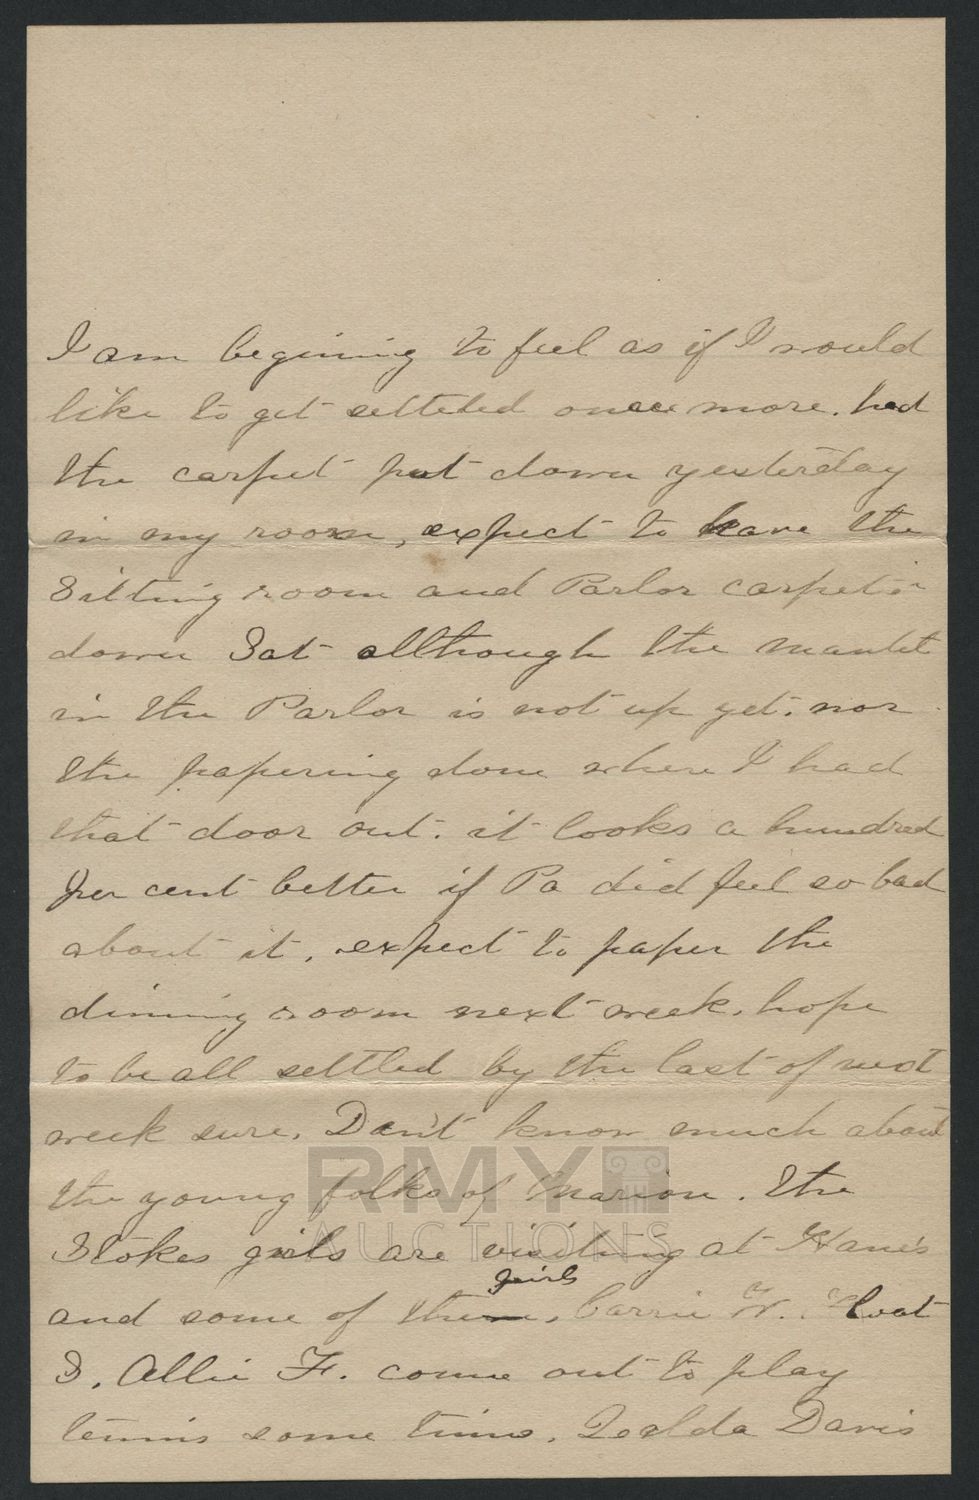 I am begining to feel as if I would
like to get setteled once more. had
the carpet put down yesterday
in my room, expect to have the
Sitting room and Parlor
down Sat although the mantel
in the Parlor is not up yet. nor
the papering done where I had
that door out. it looks a hundred
per cent better if Pa did feel so bad
about it. expect to paper the
dinning room next week. hope
to be all settled by the last of next
week sure. Don't know much about
the young folks of Marion. The
RMY
Stokes girls are visiting at Hane's
AUCTIONS
girls
and some of the Carrie W.
S. Allie F. come out to play
tennis some time. Davis